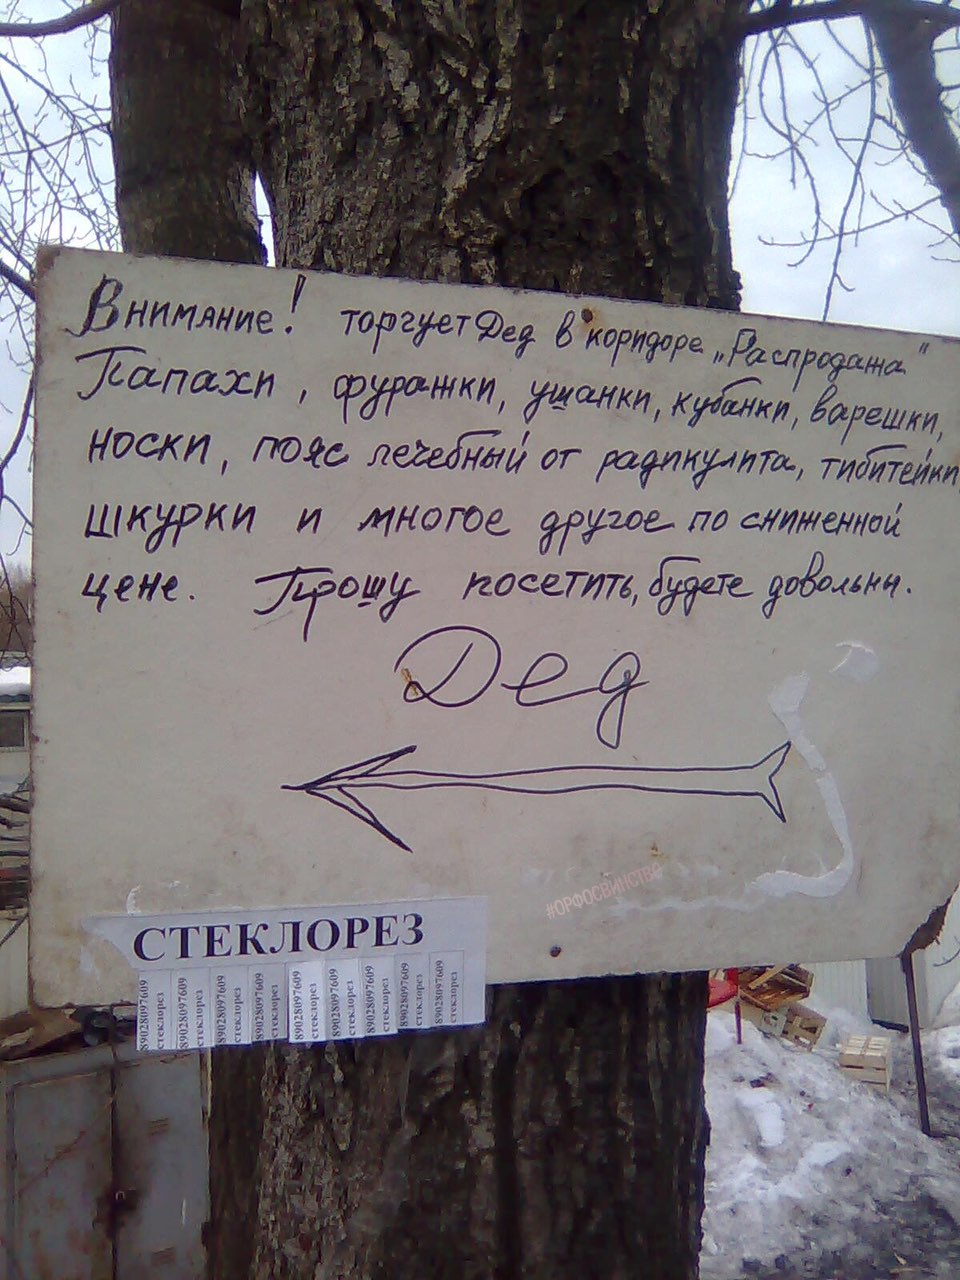 Внимание! торгует Дед в коридоре „Распродажа"
Папахи, фуражки, ушанки, кубанки, варешки,
носки, пояс лечебный от радикулита, тибитейки
шкурки и многое другое по сниженной
цене. Прошу посетить, будете довольны.
Дед
#ОРФОСВИНСТВО
СТЕКЛОРЕЗ
89028097609 стеклорез
89028097609 стеклорез
89028097609 стеклорез
89028097609 стеклорез
89028097609 стеклорез
89028097609 стеклорез
89028097609 стеклорез
89028097609 стеклорез
89028097609 стеклорез